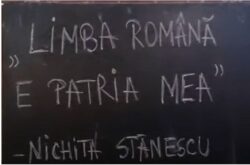 "LIMBA ROMÂNĂ
E PATRIA MEA"
- NICHITA STĂNESCU